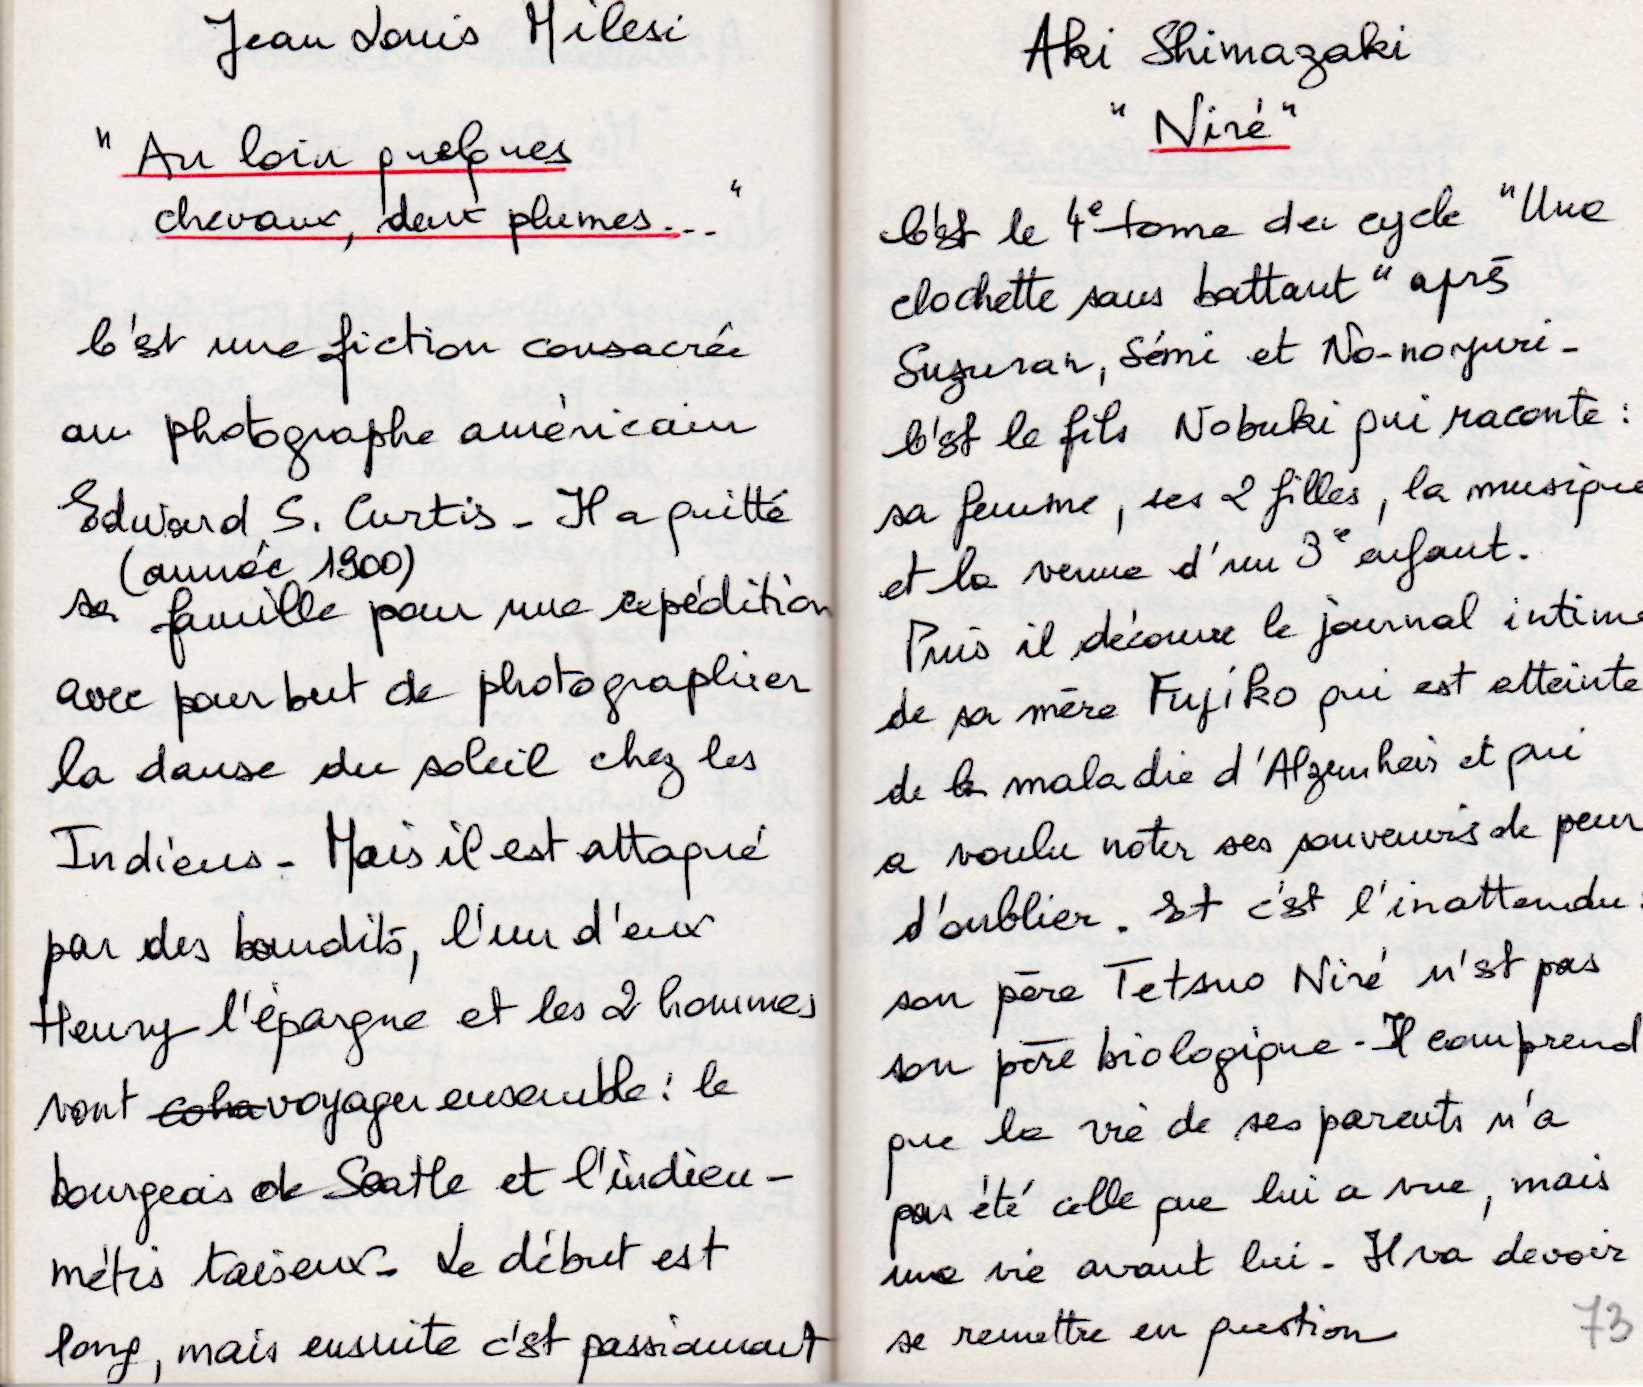 Jean Louis Milesi
"Au loin quelques
chevaux, deux plumes..."
C'est une fiction consacrée
au photographe américain
Edward S. Curtis - Il a quitté
(année 1900)
sa famille pour une expédition
avec pour but de photographier
la danse du soleil chez les
Indiens - Mais il est attaqué
par des bandits, l'un d'eux
Henry l'épargne et les 2 hommes
vont coha voyager ensemble : le
bourgeois de Seattle et l'indien-
métis taiseux - Le début est
long, mais ensuite c'est passionnant
Aki Shimazaki
"Niré"
C'est le 4e tome du cycle "Une
clochette sans battant" après
Suzuran, Sémi et No-no-yuri -
C'est le fils Nobuki qui raconte :
sa femme, ses 2 filles, la musique
et la venue d'un 3e enfant.
Puis il découvre le journal intime
de sa mère Fujiko qui est atteinte
de la maladie d'Alzeuheir et qui
a voulu noter ses souvenirs de peur
d'oublier. Et c'est l'inattendu :
son père Tetsuo Niré n'est pas
son père biologique - Il comprend
que la vie de ses parents n'a
pas été celle que lui a vue, mais
une vie avant lui - Il va devoir
se remettre en question
73